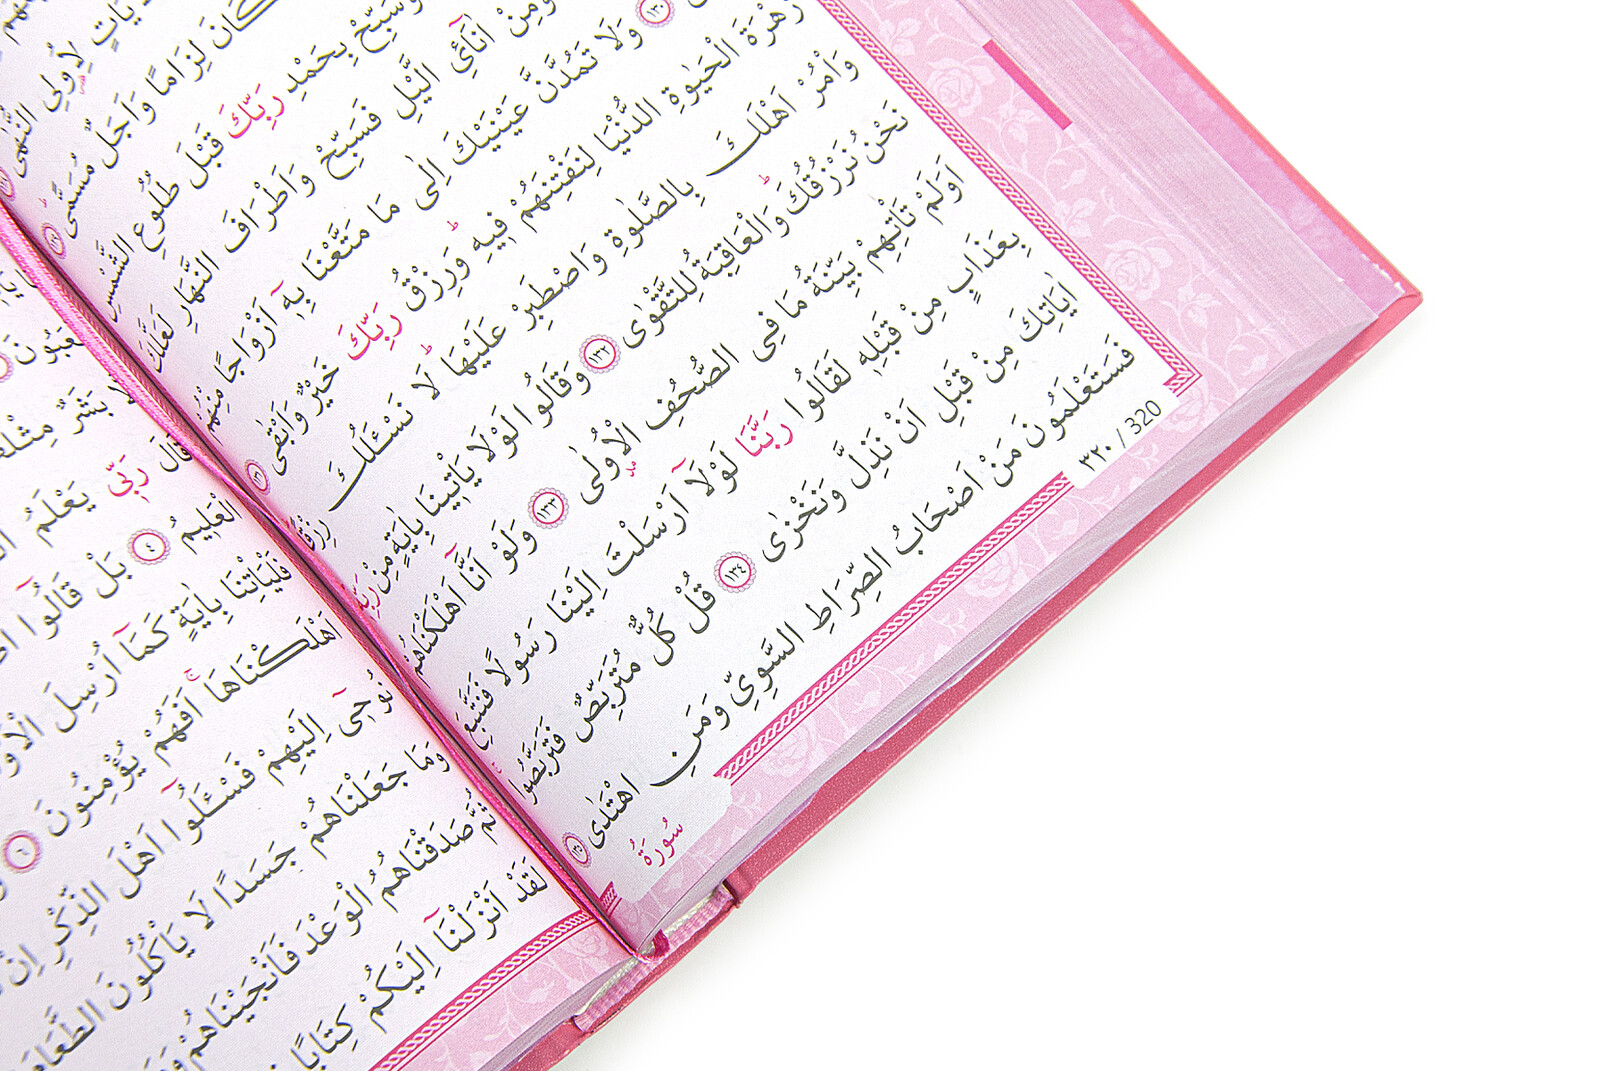 لِاُولِي النُّهٰى
كَانَ لِزَامًا وَاَجَلٌ مُسَمًّى ١٢٩
وَسَبِّحْ بِحَمْدِ رَبِّكَ قَبْلَ طُلُوعِ الشَّمْسِ
وَمِنْ اٰنَآئِ الَّيْلِ فَسَبِّحْ وَاَطْرَافَ النَّهَارِ لَعَلَّكَ
١٣٠ وَلَا تَمُدَّنَّ عَيْنَيْكَ اِلٰى مَا مَتَّعْنَا بِهٖٓ اَزْوَاجًا مِنْهُمْ
زَهْرَةَ الْحَيٰوةِ الدُّنْيَا لِنَفْتِنَهُمْ فِيهِ وَرِزْقُ رَبِّكَ خَيْرٌ وَاَبْقٰى ١٣١
وَأْمُرْ اَهْلَكَ بِالصَّلٰوةِ وَاصْطَبِرْ عَلَيْهَا لَا نَسْـَٔلُكَ رِزْقًا
نَحْنُ نَرْزُقُكَ وَالْعَاقِبَةُ لِلتَّقْوٰى ١٣٢ وَقَالُوا لَوْلَا يَأْتِينَا بِاٰيَةٍ مِنْ
اَوَلَمْ تَأْتِهِمْ بَيِّنَةُ مَا فِي الصُّحُفِ الْاُولٰى ١٣٣ وَلَوْ اَنَّٓا اَهْلَكْنَاهُمْ
بِعَذَابٍ مِنْ قَبْلِهٖ لَقَالُوا رَبَّنَا لَوْلَٓا اَرْسَلْتَ اِلَيْنَا رَسُولًا فَنَتَّبِعَ
اٰيَاتِكَ مِنْ قَبْلِ اَنْ نَذِلَّ وَنَخْزٰى ١٣٤ قُلْ كُلٌّ مُتَرَبِّصٌ فَتَرَبَّصُوا
فَسَتَعْلَمُونَ مَنْ اَصْحَابُ الصِّرَاطِ السَّوِيِّ وَمَنِ اهْتَدٰى ١٣٥
٣٢٠ / 320
سُورَةُ
بَشَرٌ
قَالَ رَبِّي يَعْلَمُ
الْعَلِيمُ ٤ بَلْ قَالُٓوا
فَلْيَأْتِنَا بِاٰيَةٍ كَمَٓا اُرْسِلَ
اَهْلَكْنَاهَا اَفَهُمْ يُؤْمِنُونَ ٦
نُوحِٓي اِلَيْهِمْ فَسْـَٔلُٓوا اَهْلَ الذِّكْرِ اِنْ
وَمَا جَعَلْنَاهُمْ جَسَدًا لَا يَأْكُلُونَ الطَّعَامَ
ثُمَّ صَدَقْنَاهُمُ الْوَعْدَ فَاَنْجَيْنَاهُمْ
لَقَدْ اَنْزَلْنَٓا اِلَيْكُمْ كِتَابًا